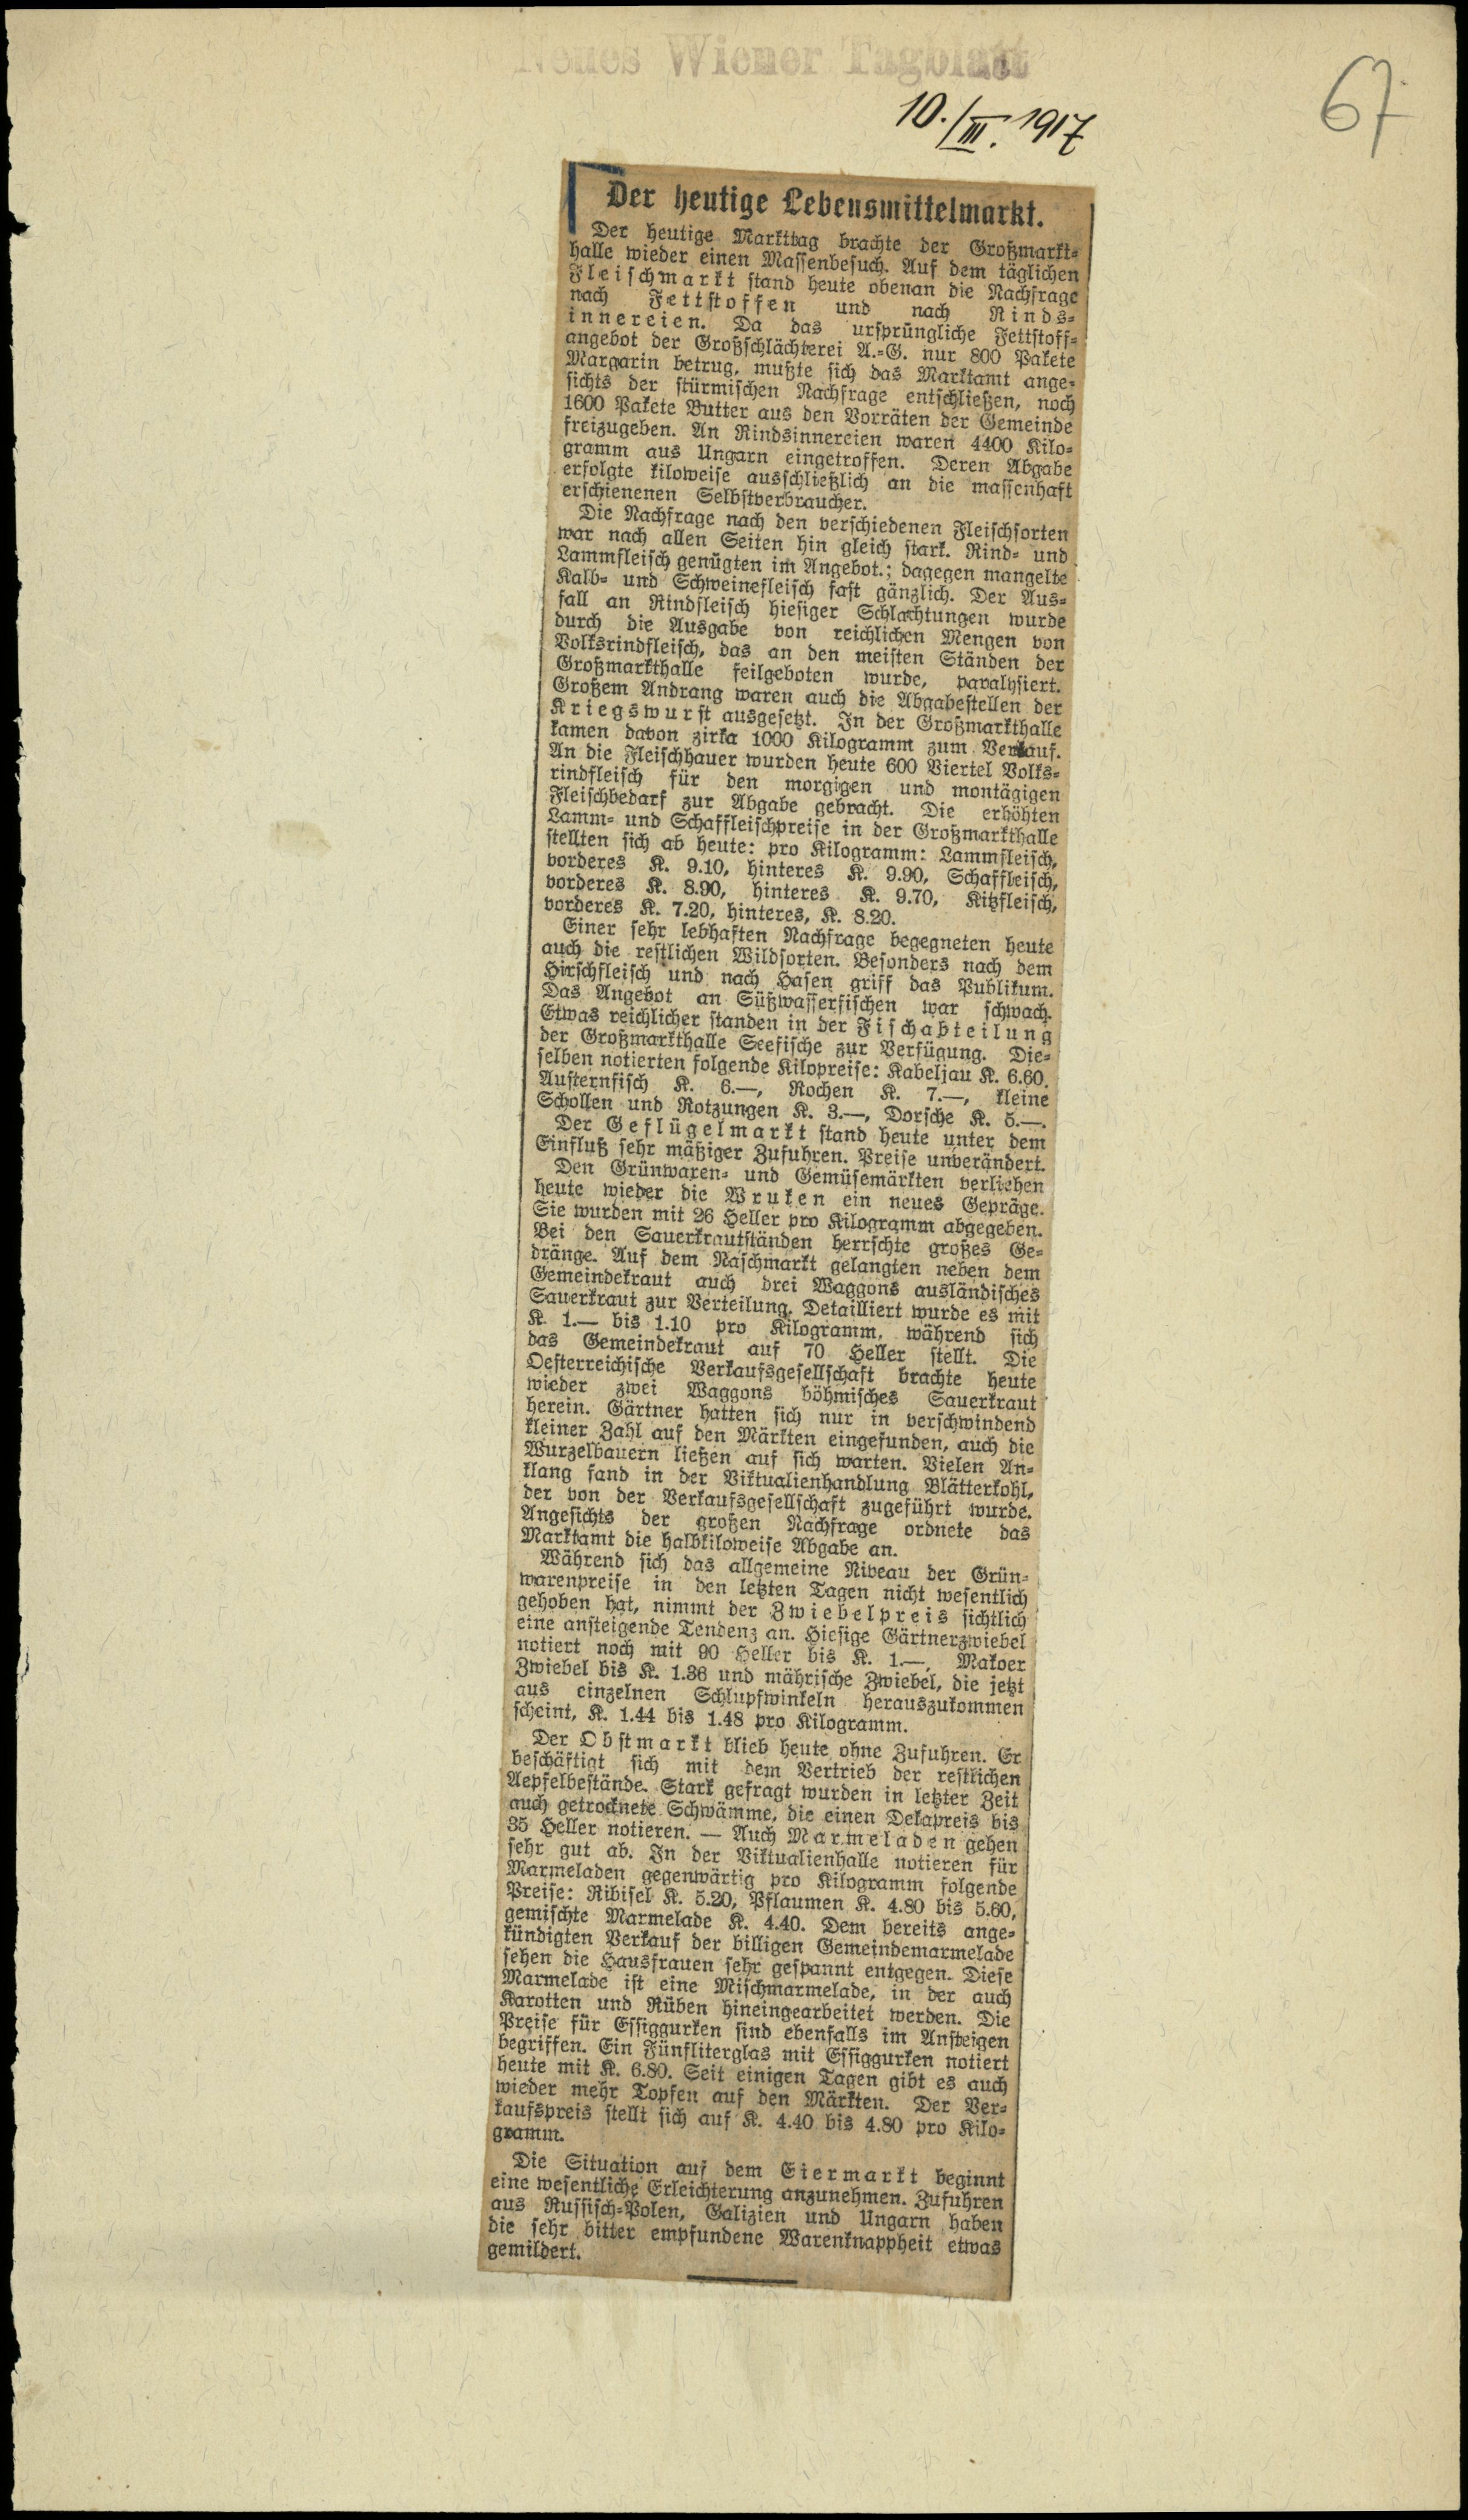 Neues Wiener Tagblatt
67
10./III. 1917
Der heutige Lebensmittelmarkt.
Der heutige Markttag brachte der Großmarkt-
halle wieder einen Massenbesuch. Auf dem täglichen
Fleischmarkt stand heute obenan die Nachfrage
nach Fettstoffen und nach Rinds-
innereien. Da das ursprüngliche Fettstoff-
angebot der Großschlächterei A.-G. nur 800 Pakete
Margarin betrug, mußte sich das Marktamt ange-
sichts der stürmischen Nachfrage entschließen, noch
1600 Pakete Butter aus den Vorräten der Gemeinde
freizugeben. An Rindsinnereien waren 4400 Kilo-
gramm aus Ungarn eingetroffen. Deren Abgabe
erfolgte kiloweise ausschließlich an die massenhaft
erschienenen Selbstverbraucher.
Die Nachfrage nach den verschiedenen Fleischsorten
war nach allen Seiten hin gleich stark. Rind- und
Lammfleisch genügten im Angebot.; dagegen mangelte
Kalb- und Schweinefleisch fast gänzlich. Der Aus-
fall an Rindfleisch hiesiger Schlachtungen wurde
durch die Ausgabe von reichlichen Mengen von
Volksrindfleisch, das an den meisten Ständen der
Großmarkthalle feilgeboten wurde, paralysiert.
Großem Andrang waren auch die Abgabestellen der
Kriegswurst ausgesetzt. In der Großmarkthalle
kamen davon zirka 1000 Kilogramm zum Verkauf.
An die Fleischhauer wurden heute 600 Viertel Volks-
rindfleisch für den morgigen und montägigen
Fleischbedarf zur Abgabe gebracht. Die erhöhten
Lamm- und Schaffleischpreise in der Großmarkthalle
stellten sich ab heute: pro Kilogramm: Lammfleisch,
vorderes K. 9.10, hinteres K. 9.90, Schaffleisch,
vorderes K. 8.90, hinteres K. 9.70, Kitzfleisch,
vorderes K. 7.20, hinteres, K. 8.20.
Einer sehr lebhaften Nachfrage begegneten heute
auch die restlichen Wildsorten. Besonders nach dem
Hirschfleisch und nach Hasen griff das Publikum.
Das Angebot an Süßwasserfischen war schwach.
Etwas reichlicher standen in der Fischabteilung
der Großmarkthalle Seefische zur Verfügung. Die-
selben notierten folgende Kilopreise: Kabeljau K. 6.60.
Austernfisch K. 6.—, Rochen K. 7.—, kleine
Schollen und Rotzungen K. 3.—, Dorsche K. 5.—.
Der Geflügelmarkt stand heute unter dem
Einfluß sehr mäßiger Zufuhren. Preise unverändert.
Den Grünwaren- und Gemüsemärkten verliehen
heute wieder die Wruken ein neues Gepräge.
Sie wurden mit 26 Heller pro Kilogramm abgegeben.
Bei den Sauerkrautständen herrschte großes Ge-
dränge. Auf dem Naschmarkt gelangten neben dem
Gemeindekraut auch drei Waggons ausländisches
Sauerkraut zur Verteilung. Detailliert wurde es mit
K. 1.— bis 1.10 pro Kilogramm, während sich
das Gemeindekraut auf 70 Heller stellt. Die
Oesterreichische Verkaufsgesellschaft brachte heute
wieder zwei Waggons böhmisches Sauerkraut
herein. Gärtner hatten sich nur in verschwindend
kleiner Zahl auf den Märkten eingefunden, auch die
Wurzelbauern ließen auf sich warten. Vielen An-
klang fand in der Viktualienhandlung Blätterkohl,
der von der Verkaufsgesellschaft zugeführt wurde.
Angesichts der großen Nachfrage ordnete das
Marktamt die halbkiloweise Abgabe an.
Während sich das allgemeine Niveau der Grün-
warenpreise in den letzten Tagen nicht wesentlich
gehoben hat, nimmt der Zwiebelpreis sichtlich
eine ansteigende Tendenz an. Hiesige Gärtnerzwiebel
notiert noch mit 90 Heller bis K. 1.—, Makoer
Zwiebel bis K. 1.36 und mährische Zwiebel, die jetzt
aus einzelnen Schlupfwinkeln herauszukommen
scheint, K. 1.44 bis 1.48 pro Kilogramm.
Der Obstmarkt blieb heute ohne Zufuhren. Er
beschäftigt sich mit dem Vertrieb der restlichen
Aepfelbestände. Stark gefragt wurden in letzter Zeit
auch getrocknete Schwämme, die einen Dekapreis bis
35 Heller notieren. — Auch Marmeladen gehen
sehr gut ab. In der Viktualienhalle notieren für
Marmeladen gegenwärtig pro Kilogramm folgende
Preise: Ribisel K. 5.20, Pflaumen K. 4.80 bis 5.60,
gemischte Marmelade K. 4.40. Dem bereits ange-
kündigten Verkauf der billigen Gemeindemarmelade
sehen die Hausfrauen sehr gespannt entgegen. Diese
Marmelade ist eine Mischmarmelade, in der auch
Karotten und Rüben hineingearbeitet werden. Die
Preise für Essiggurken sind ebenfalls im Ansteigen
begriffen. Ein Fünfliterglas mit Essiggurken notiert
heute mit K. 6.80. Seit einigen Tagen gibt es auch
wieder mehr Topfen auf den Märkten. Der Ver-
kaufspreis stellt sich auf K. 4.40 bis 4.80 pro Kilo-
gramm.
Die Situation auf dem Eiermarkt beginnt
eine wesentliche Erleichterung anzunehmen. Zufuhren
aus Russisch-Polen, Galizien und Ungarn haben
die sehr bitter empfundene Warenknappheit etwas
gemildert.